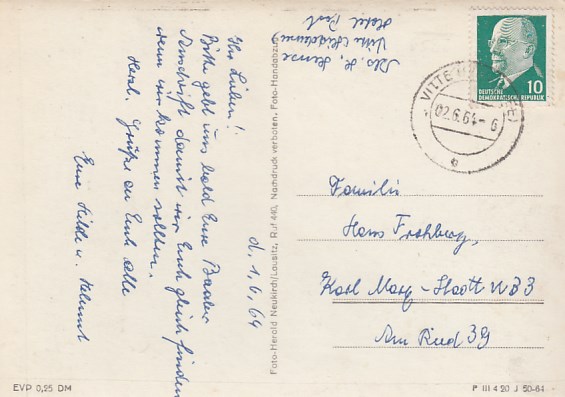 Abs. H.
Vitte (Hiddensee)
Hotel Post
DEUTSCHE
DEMOKRATISCHE REPUBLIK 10
VITTE
02.6.64-6
b
d. 1.6.64
Ihr Lieben!
Bitte gebt uns bald Eure
Anschrift damit wir Euch gleich finden
wenn wir kommen sollten.
Herzl. Grüße an Euch alle
Eure Hilde u. Helmut
Foto-Herold Neukirch/Lausitz, Ruf 440, Nachdruck verboten, Foto-Handabzug
Familie
Hans Frohberg,
Karl Marx-Stadt W33
Am Ried 39
EVP 0,25 DM
P III 4 20 J 50-64